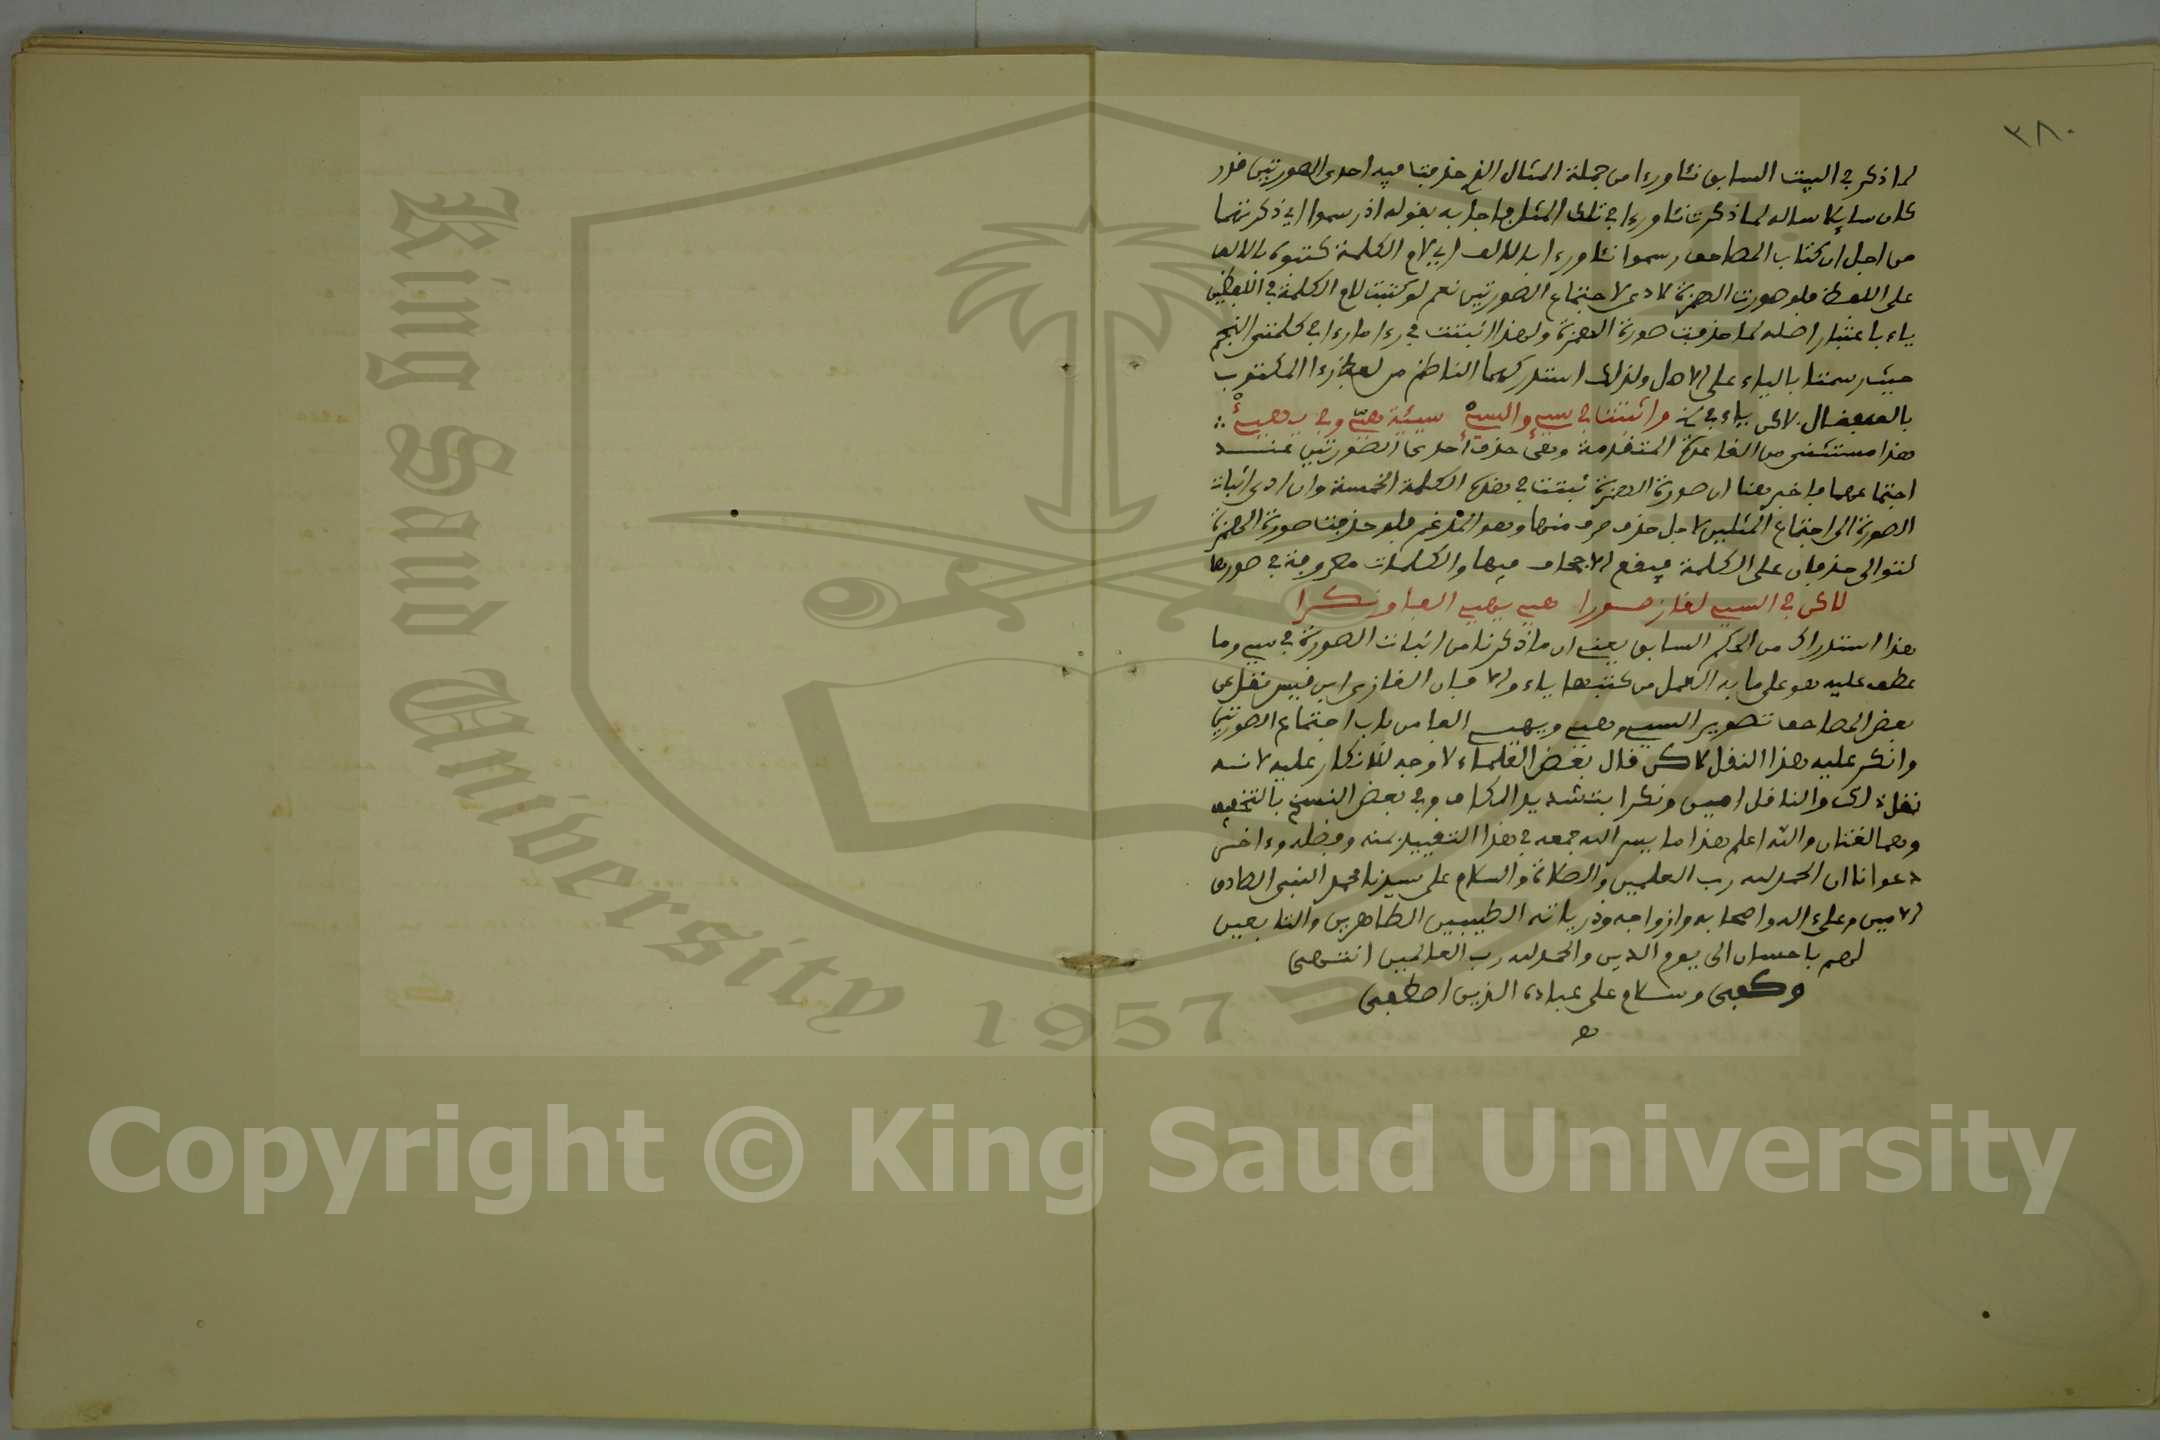 ٣٨٠
لما ذكر في البيت السابق نئا ورءا من جملة المثال الذي حذفت فيه احدى الصورتين قدر
كان سايلا ساله لما ذكرت نئا ورءا في تلك المثل فاجابه بقوله اذ رسموا اي ذكرتهما
من اجل ان كتاب المصاحف رسموا نئا ورءا بالالف اي لام الكلمة كتبوه بالالف
على اللفظ فلو صورت الهمزة لادى لاجتماع الصورتين نعم لو كتبت لام الكلمة في اللفظين
ياء باعتبار اصله لما حذفت صورة الهمزة ولهذا اثبتت في رءا ما رءا في كلمتي النجم
حيث رسمتا بالياء على الاصل ولذلك استدركهما الناظم من لفظ رءا المكتوب
بالف فقال لاكن ياء في واثبتت في سيئ والسيئ سيئة هيئ وفي يهيئ
هذا مستثنى من القاعدة المتقدمة وهي حذف احدى الصورتين عند
اجتماعهما فاخبر هنا ان صورة الهمزة ثبتت في هذه الكلمة الخمسة وان ادى اثبات
الصورة الى اجتماع المثلين لاجل حذف حرف منها وهو المدغم فلو حذفت صورة الهمزة
لتوالى حذفان على الكلمة فيقع الاجحاف فيها والكلمات معروفة في صورها
لاكن في السيئ لغاز صورا هيئ يهيئ الفا ونكرا
هذا استدراك من الحكم السابق يعني ان ما ذكرنا من اثبات الصورة في سيئ وما
عطف عليه هو على ما به العمل من كتبها ياء والا فان الغازي ابن قيس نقل عن
بعض المصاحف تصوير السيئ وهيئ ويهيئ الفا من باب اجتماع الصورتين
وانكر عليه هذا النقل لاكن قال بعض العلماء لا وجه للانكار عليه لانه
نقل ذلك والناقل امين ونكرا بتشديد الكاف وفي بعض النسخ بالتخفيف
وهما لغتان والله اعلم هذا ما يسر الله جمعه في هذا التقييد بمنه وفضله وءاخر
دعوانا ان الحمد لله رب العلمين والصلاة والسلام على سيدنا محمد النبي الصادق
الامين وعلى ءاله واصحابه وازواجه وذرياته الطيبين الطاهرين والتابعين
لهم باحسان الى يوم الدين والحمد لله رب العالمين انتهى
وكفى وسلام على عباده الذين اصطفى
ه
King Saud University
1957
Copyright © King Saud University